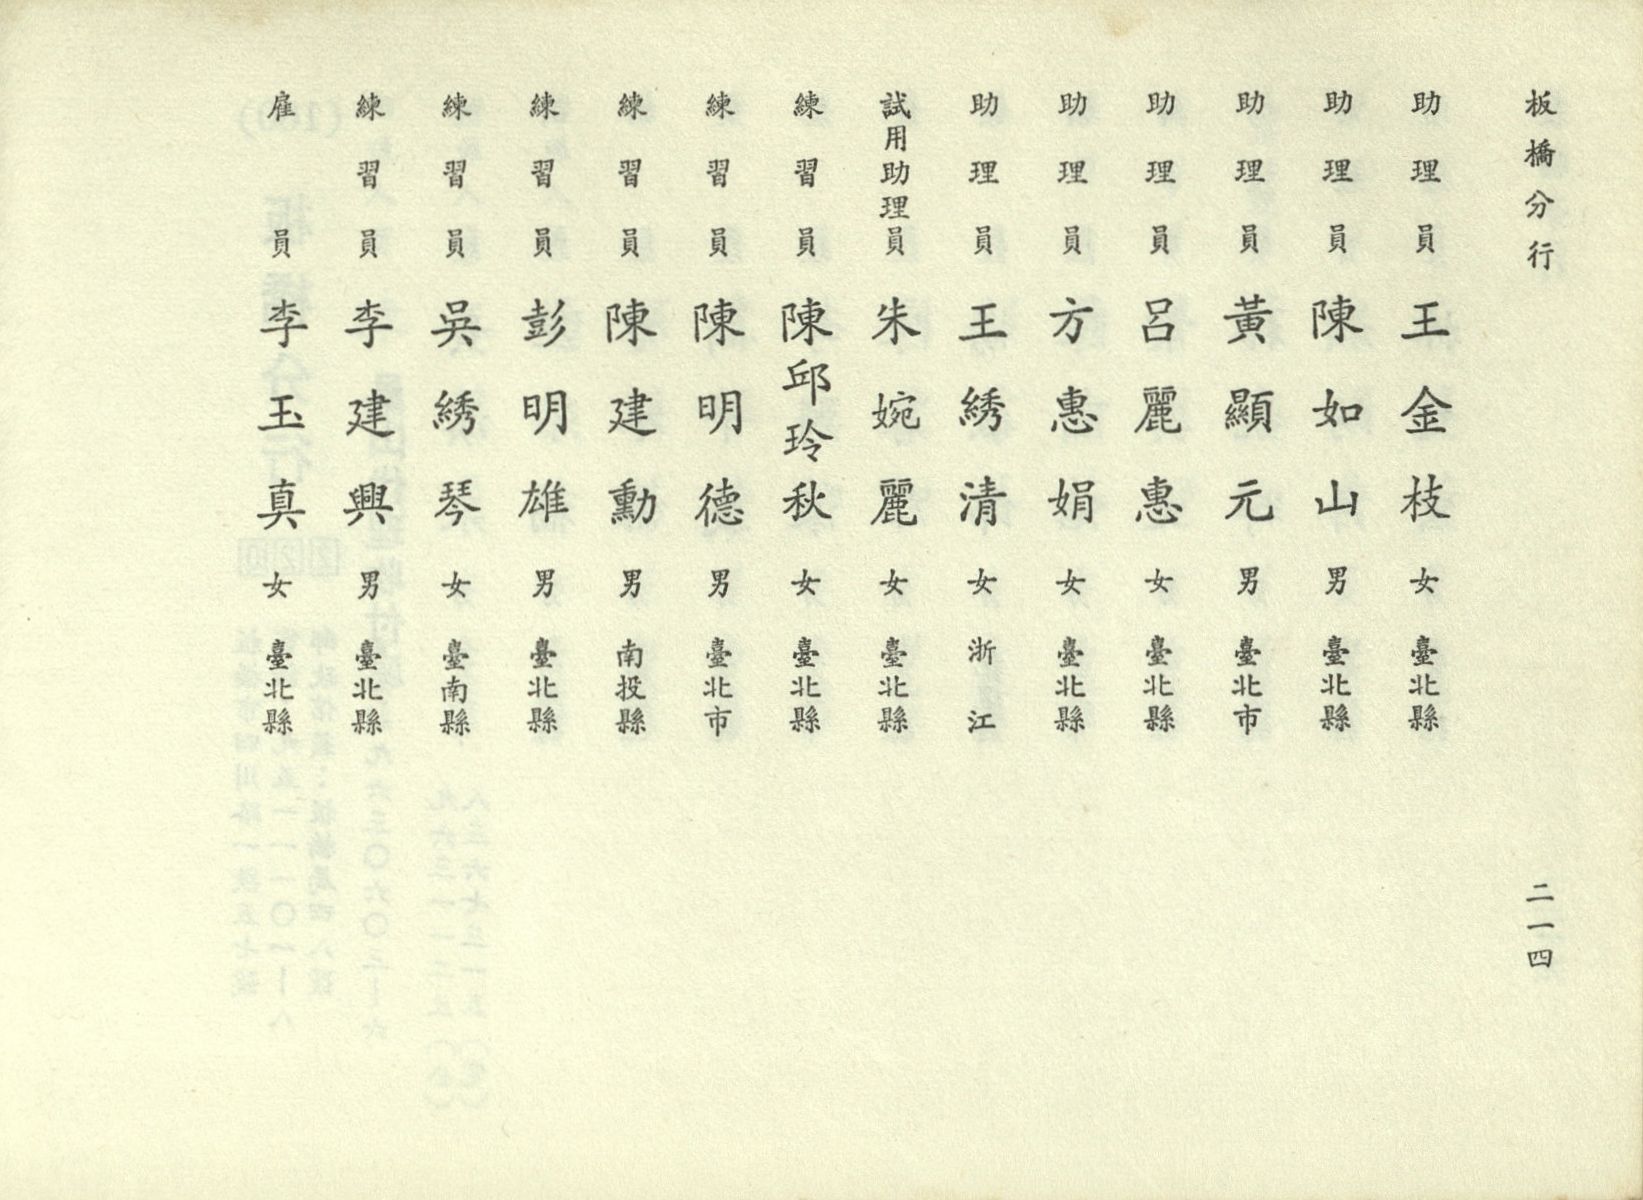 板橋分行
二一四
助理員 王金枝 女 臺北縣
助理員 陳如山 男 臺北縣
助理員 黃顯元 男 臺北市
助理員 呂麗惠 女 臺北縣
助理員 方惠娟 女 臺北縣
助理員 王綉清 女 浙江
試用助理員 朱婉麗 女 臺北縣
練習員 陳邱玲秋 女 臺北縣
練習員 陳明德 男 臺北市
練習員 陳建勳 男 南投縣
練習員 彭明雄 男 臺北縣
練習員 吳綉琴 女 臺南縣
練習員 李建興 男 臺北縣
雇員 李玉真 女 臺北縣